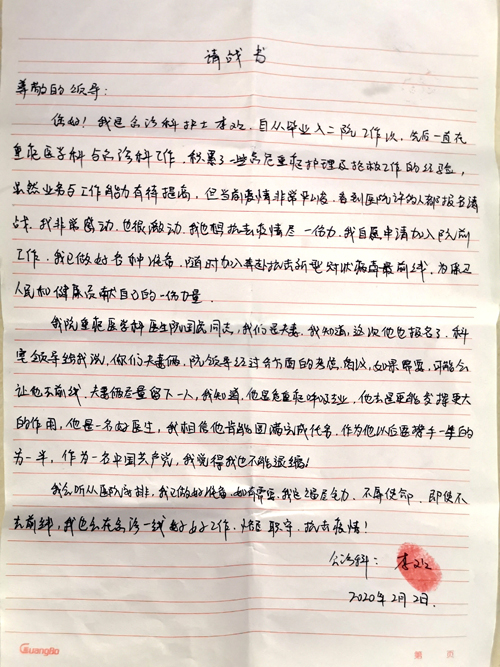 请战书
尊敬的领导:
您好!我是急诊科护士李欢,自从毕业入二院工作以来,先后一直在
重症医学科与急诊科工作,积累了一些急危重症护理及抢救工作的经验,
虽然业务与工作能力有待提高,但当前疫情非常严峻,看到医院许多人都报名请
战,我非常感动,也很激动,我也想抗击疫情尽一份力,我自愿申请加入队前
工作,我已做好各种准备,随时加入奔赴抗击新型冠状病毒最前线,为保卫
人民和健康贡献自己的一份力量。
我院重症医学科医生阮国武同志,我们是夫妻,我知道,这次他也报名了,科
室领导给我说,你们夫妻俩,院领导经过各方面的考虑,商议,如果需要,可能会
让他去前线,夫妻俩尽量留下一人,我知道,他是危重症呼吸专业,他去是更能发挥更大
的作用,他是一名好医生,我相信他肯定能圆满完成任务,作为他以后医疗手一基的
另一半,作为一名中国共产党,我觉得我也不能退缩!
我会听从医院安排,我已做好准备,如有需要,我定竭尽全力,不辱使命,即使不
去前线,我也会在急诊一线好好工作,恪尽职守,抗击疫情!
急诊科: 李欢
2020年2月2日.
GuangBo
第 页